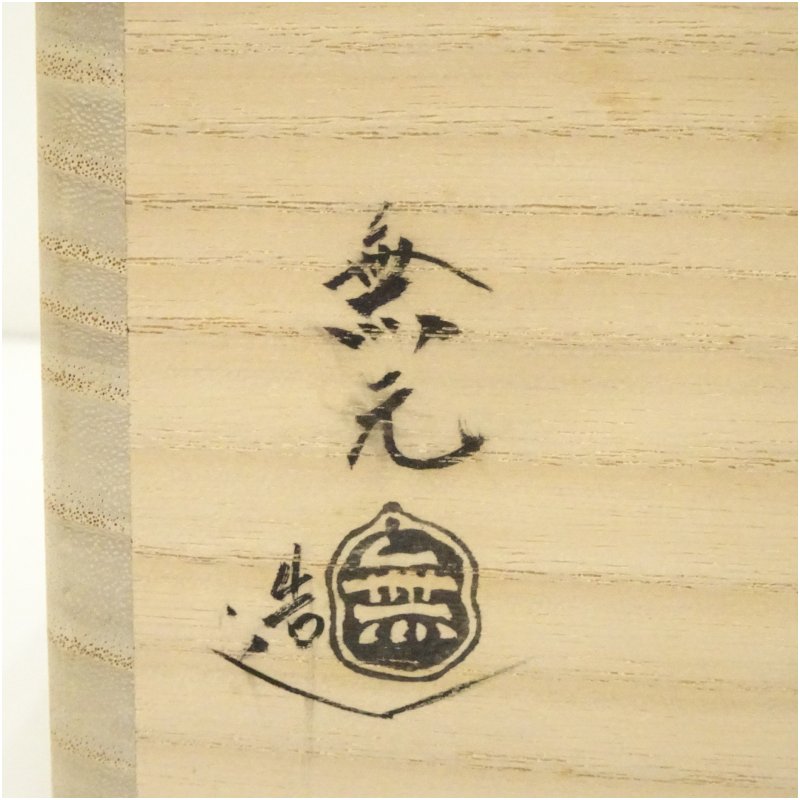 無元
造
無